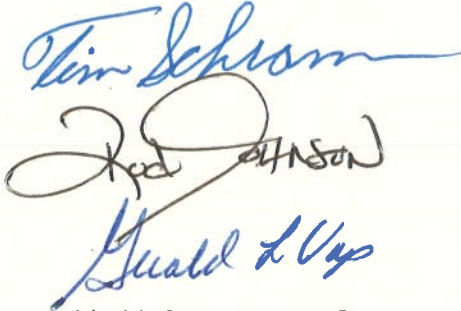 Tim Schramm
Rod Johnson
Gerald L